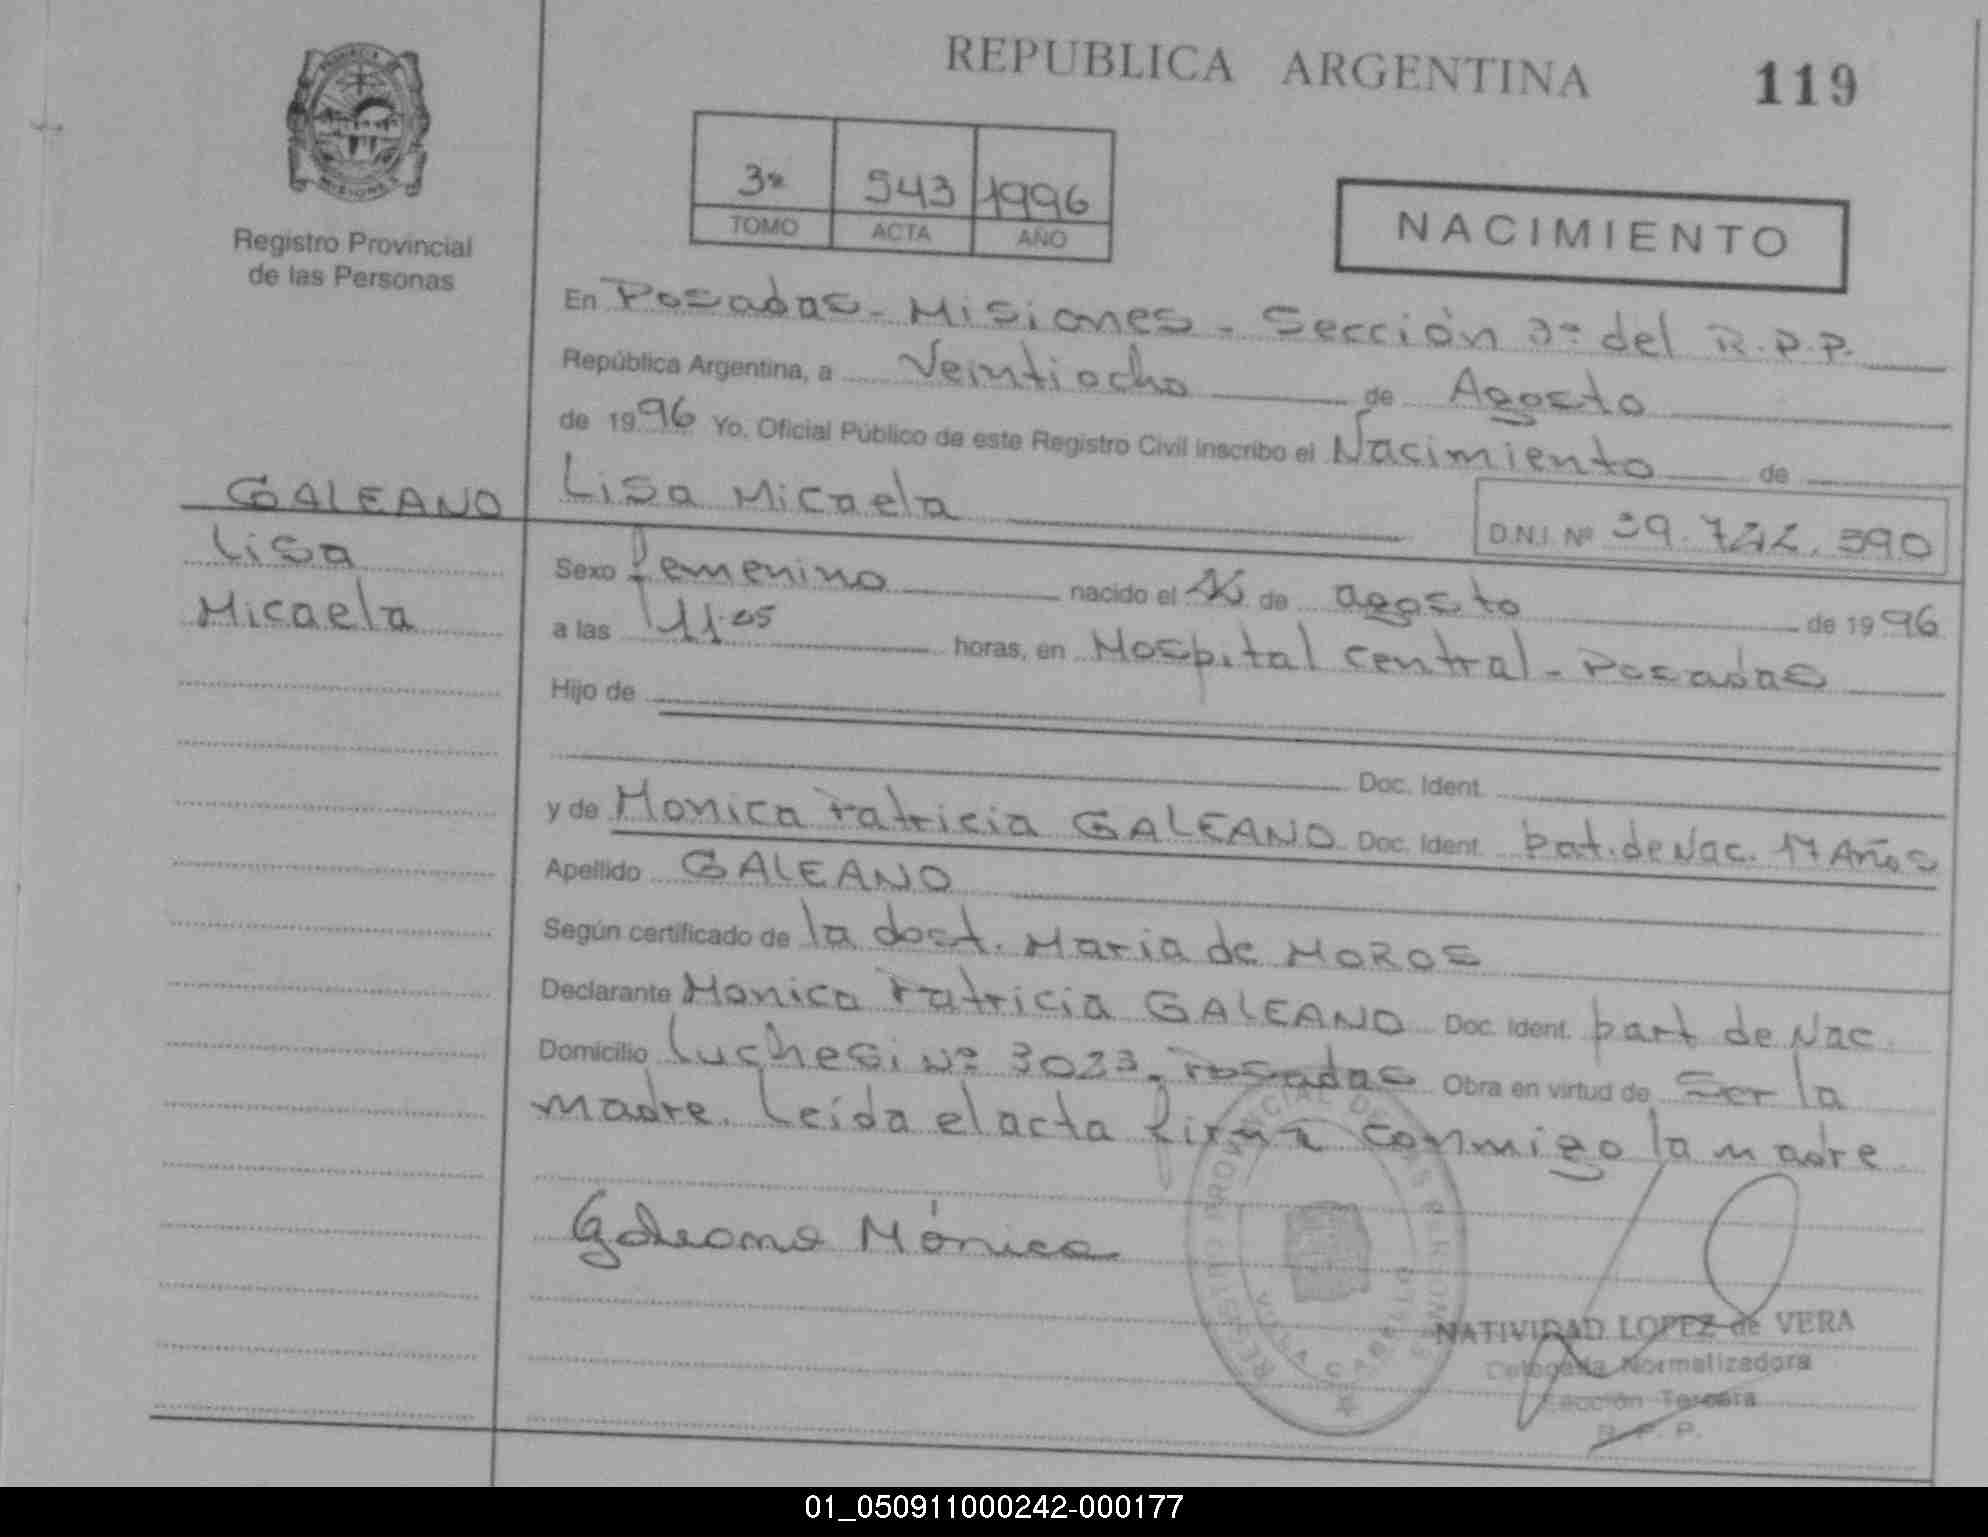 REPUBLICA ARGENTINA 119
PROVINCIA DE
MISIONES
Registro Provincial
de las Personas
3º 543 1996
TOMO ACTA AÑO
NACIMIENTO
En Posadas - Misiones - Sección 3º del R.P.P.
República Argentina, a Veintiocho de Agosto
de 1996 Yo, Oficial Público de este Registro Civil inscribo el Nacimiento de
Lisa Micaela
D.N.I. Nº 39.722.390
GALEANO
Lisa
Micaela
Sexo femenino nacido el de agosto de 1996
a las 11.05 horas, en Hospital central - Posadas
Hijo de
Doc. Ident.
y de Monica Patricia GALEANO Doc. Ident. Part. de Nac. 17 Años
Apellido GALEANO
Según certificado de la doct. Maria de MOROS
Declarante Monica Patricia GALEANO Doc. Ident. part de Nac.
Domicilio Luchesi Nº 3023 - Posadas Obra en virtud de Ser la
madre. Leída el acta firma conmigo la madre
Galeano Mónica
REGISTRO PROVINCIAL DE LAS PERSONAS
VILLA CABELLO
NATIVIDAD LOPEZ de VERA
Delegada Normalizadora
Sección Tercera
R. P. P.
01_050911000242-000177